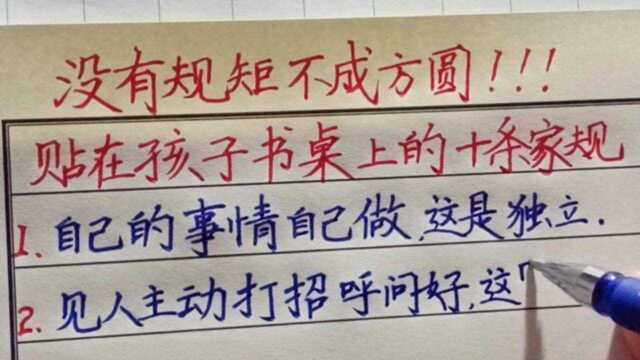 没有规矩不成方圆!!!
贴在孩子书桌上的十条家规
1. 自己的事情自己做,这是独立.
2. 见人主动打招呼问好,这